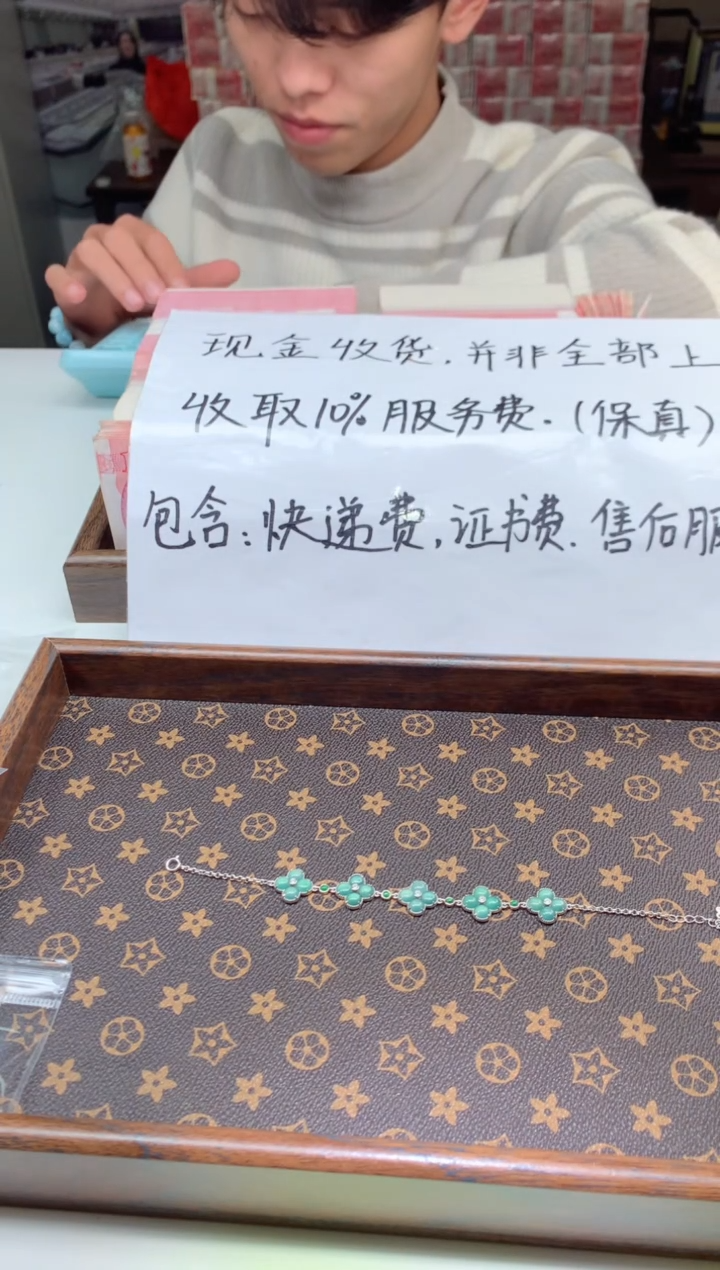 现金收货.并非全部上
收取10%服务费.(保真)
包含:快递费,证书费.售后服